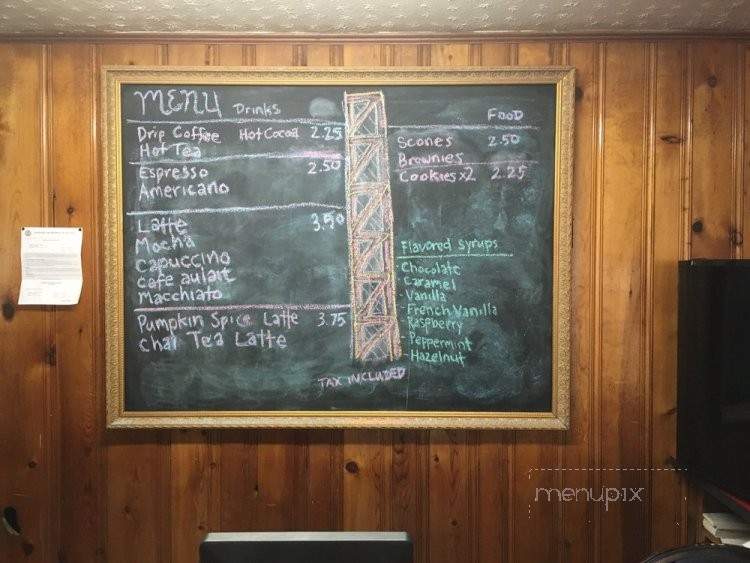 MENU Drinks
Drip Coffee Hot Cocoa 2.25
Hot Tea
Espresso 2.50
Americano
Latte 3.50
Mocha
Capuccino
Cafe aulait
Macchiato
Pumpkin Spice Latte 3.75
Chai Tea Latte
FOOD
Scones 2.50
Brownies
Cookies x2 2.25
Flavored Syrups
- Chocolate
- Caramel
- Vanilla
- French Vanilla
- Raspberry
- Peppermint
- Hazelnut
TAX INCLUDED
menupix